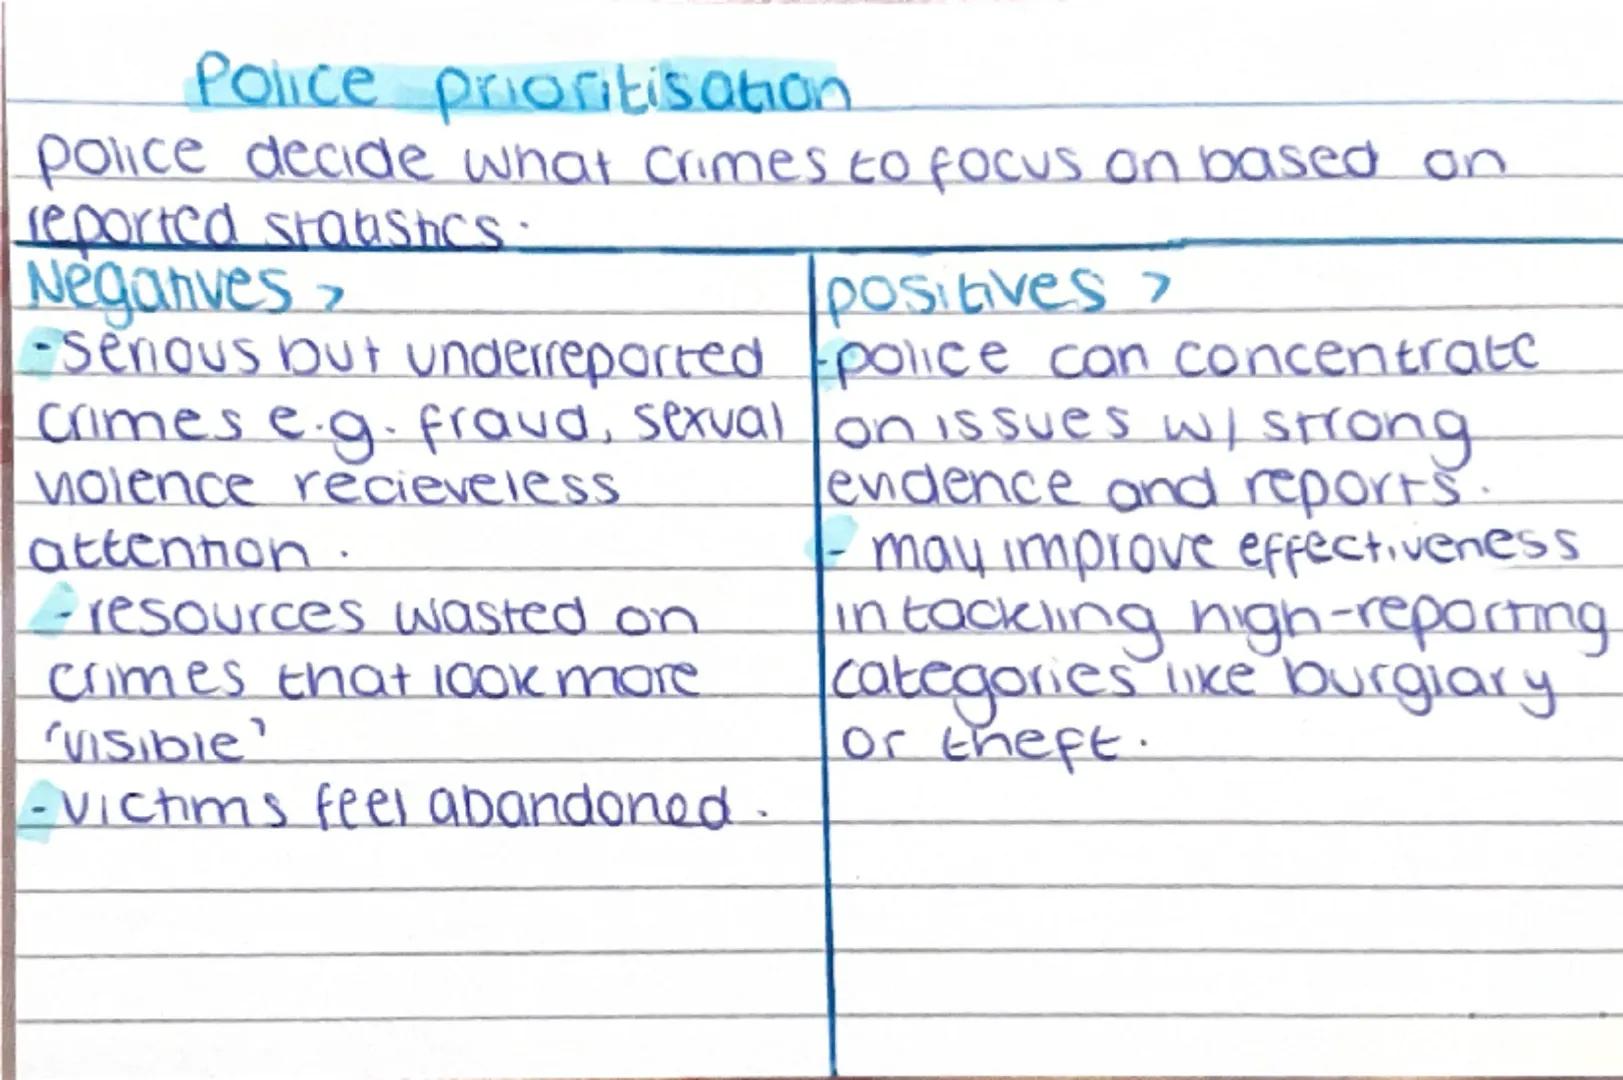 Police prioritisation
police decide what crimes to focus on based on
reported statistics.
Negatives >
-serious but underreported
crimes e.g. fraud, sexual
violence recieve less
attention.
-resources wasted on
crimes that look more
'visible'
-victims feel abandoned.
positives >
-police can concentrate
on issues w/ strong
evidence and reports.
- may improve effectiveness
in tackling high-reporting
categories like burglary
or theft.